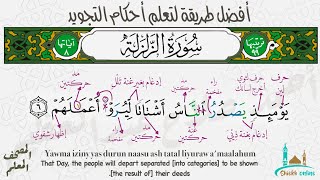 أفضل طريقة لتعلم أحكام التجويد
ترتيبها ٩٩
سُورَةُ الزَّلْزَلَةِ
آياتها ٨
حرف لين
حرف قوي
مد حركتين
إدغام بغير غنة ثقل
مد حركتين
يَوْمَئِذٍ يَصْدُرُ النَّاسُ أَشْتَاتًا لِّيُرَوْا۟ أَعْمَٰلَهُمْ ٦
إدغام بغنة
مد حركتين
إظهار شفوي
Yawma iziny yas durun naasu ash tatal liyuraw a'maalahum
That Day, the people will depart separated [into categories] to be shown
[the result of] their deeds.
المصحف المعلم
Sheikh online